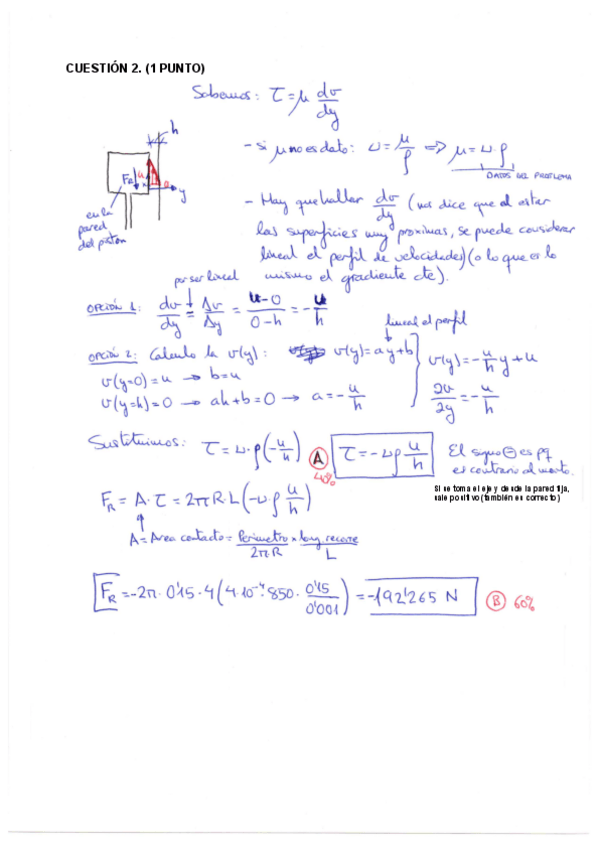 CUESTIÓN 2. (1 PUNTO)
Sabemos: τ = μ dv/dy
h
- si μ no es dato: υ = μ/ρ ⇒ μ = υ·ρ
DATOS DEL PROBLEMA
F_R u
y
en la
pared
del piston
- Hay que hallar dv/dy (nos dice que al estar
las superficies muy proximas, se puede considerar
lineal el perfil de velocidades) (o lo que es lo
mismo el gradiente cte).
por ser lineal
OPCIÓN 1: dv/dy = Δv/Δy = u-0/0-h = -u/h
lineal el perfil
OPCIÓN 2: Calculo la v(y): v(y) = ay+b
v(y=0) = u → b=u
v(y=h) = 0 → ah+b=0 → a = -u/h
v(y) = -u/h y + u
∂v/∂y = -u/h
Sustituimos: τ = υ·ρ(-u/h) A 40% τ = -υρ u/h
El signo ⊖ es pq
es contrario al movto.
Si se toma el eje y desde la pared fija,
sale positivo (también es correcto)
F_R = A·τ = 2πR·L(-υρ u/h)
A = Area contacto = Perimetro × long recorre
2πR L
F_R = -2π·0'15·4(4·10⁻⁴·850·0'15/0'001) = -192'265 N B 60%